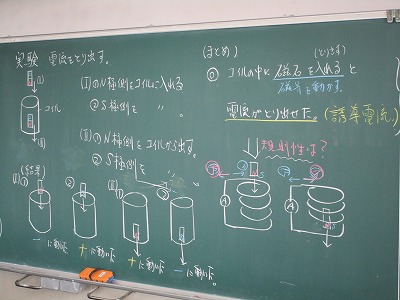 実験 電流をとり出す。
(I)
コイル
(II)
(I)① N極側をコイルに入れる
② S極側を 〃 。
(II)① N極側をコイルから出す。
② S極側を 〃 。
(結果)
(I)① ② (II)① ②
－に動いた ＋に動いた ＋に動いた －に動いた。
(まとめ)
(とり出す)
◎ コイルの中に磁石を入れると
磁石を動かす
電流がとり出せた。(誘導電流)
規則性は?
A A